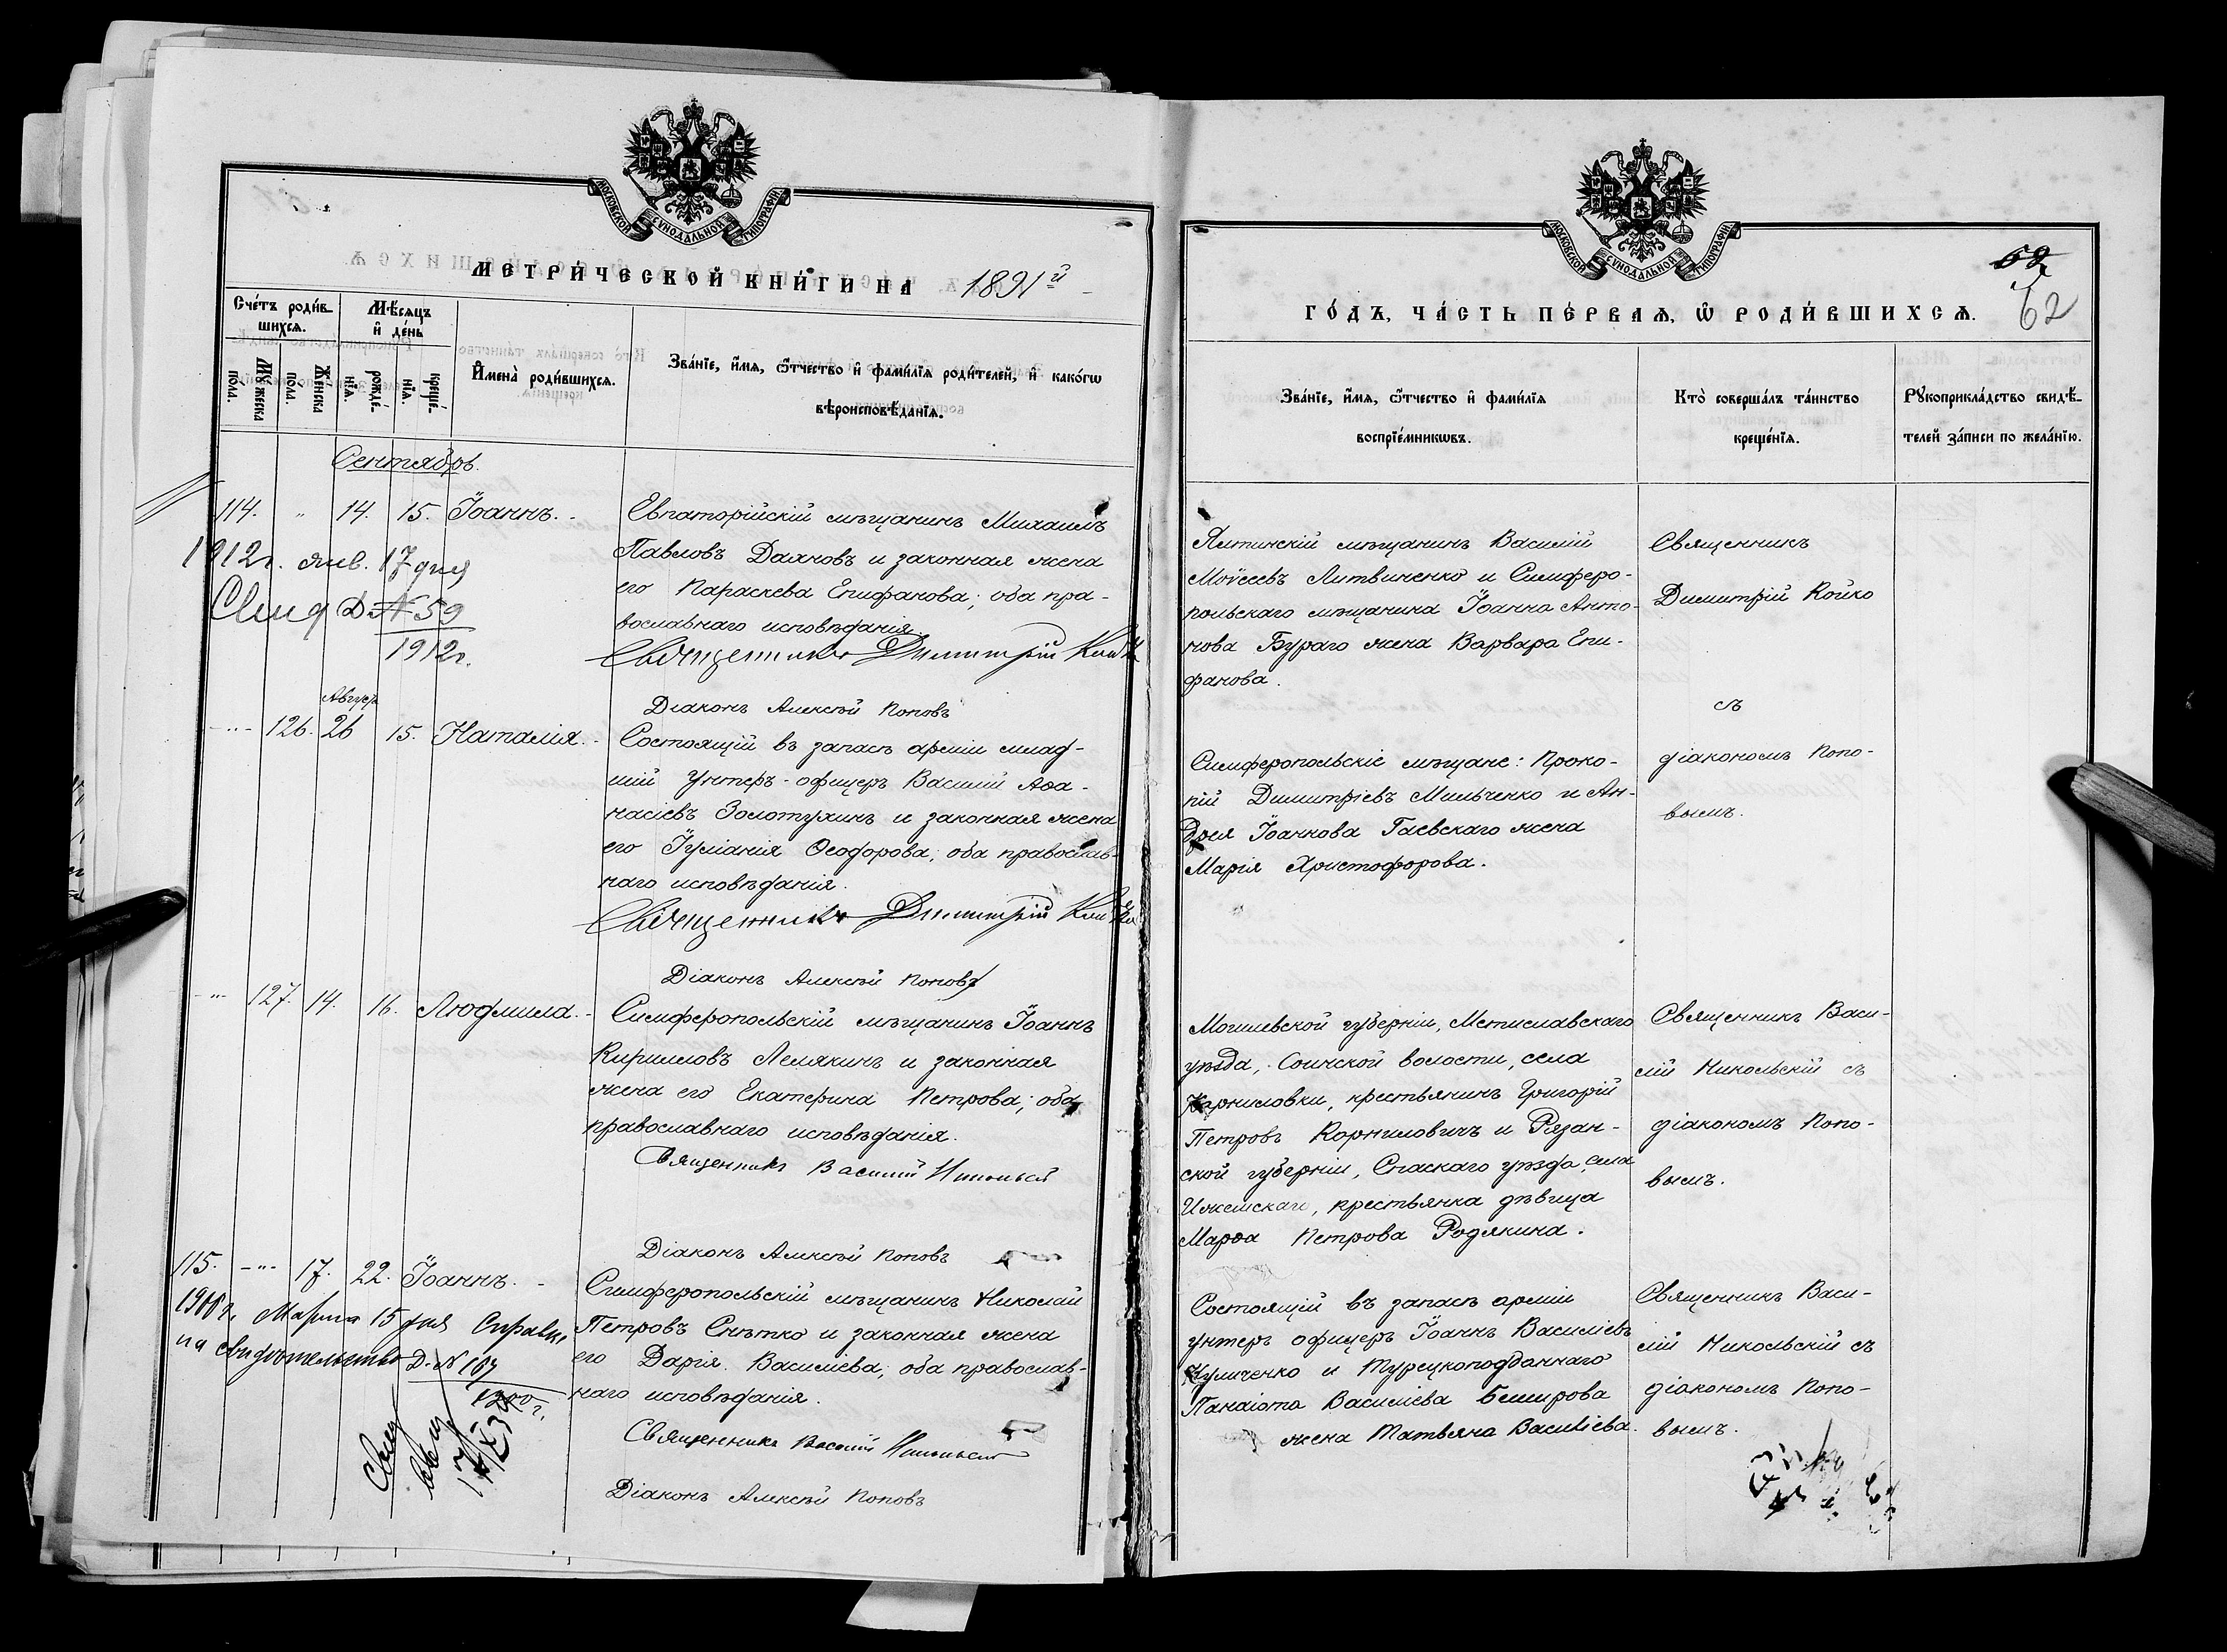 МОСКОВСКОЙ СУНОДАЛЬНОЙ ТИПОГРАФІИ
МЕТРИ́ЧЕСКОЙ КНИ́ГИ НА 1891й
Сче́тъ роди́вшихсѧ.
Мѣ́сѧцъ и҆ де́нь
Мꙋ́жеска по́ла.
Же́нска по́ла.
рожде́нїѧ.
креще́нїѧ.
И҆мена̀ роди́вшихсѧ.
Зва́нїе, и҆́мѧ, ѻ҆́тчество и҆ фами́лїѧ роди́телей, и҆ како́гѡ
вѣроисповѣ́данїѧ.
Сентябрь.
114. " 14. 15. Іоаннъ. -
Евпаторійскій мѣщанинъ Михаилъ
Павловъ Даяновъ и законная жена
его Параскева Епифанова; оба пра-
вославнаго исповѣданія.
Священникъ Димитрій Койко
Діаконъ Алексѣй Поповъ
1912г. янв. 17 дня
Свид Д. № 59
1912г.
Август
-"- 126. 26 15. Наталія. -
Состоящій въ запасѣ арміи млад-
шій унтеръ-офицеръ Василій Аѳа-
насіевъ Золотухинъ и законная жена
его Іуліанія Ѳеодорова; оба православ-
наго исповѣданія.
Священникъ Димитрій Койко
Діаконъ Алексѣй Поповъ
-"- 127. 14. 16. Людмила. -
Симферопольскій мѣщанинъ Іоаннъ
Кирилловъ Лемякинъ и законная
жена его Екатерина Петрова; оба
православнаго исповѣданія.
Священникъ Василій Никольскій
Діаконъ Алексѣй Поповъ
115. -"- 17. 22. Іоаннъ. -
Симферопольскій мѣщанинъ Николай
Петровъ Снѣтко и законная жена
его Дарія Василиева; оба православ-
наго исповѣданія.
Священникъ Василій Никольскій
Діаконъ Алексѣй Поповъ
Марта 15 дня Справка
на свидѣтельство Д. № 107
МОСКОВСКОЙ СУНОДАЛЬНОЙ ТИПОГРАФІИ
62
ГО́ДЪ, ЧА́СТЬ ПЕ́РВАѦ, Ѡ҆ РОДИ́ВШИХСѦ.
Зва́нїе, и҆́мѧ, ѻ҆́тчество и҆ фами́лїѧ
воспрїе́мникѡвъ.
Кто̀ соверша́лъ та́инство
креще́нїѧ.
Рꙋкоприкла́дство свидѣ́-
телей за́писи по жела́нїю.
Ялтинскій мѣщанинъ Василій
Моѵсеевъ Литвиненко и Симферо-
польскаго мѣщанина Іоанна Анто-
нова Бураго жена Варвара Епи-
фанова.
Священникъ
Димитрій Койко
съ
діакономъ Попо-
вымъ.
Симферопольскіе мѣщане: Проко-
пій Димитріевъ Мильченко и Ан-
дрея Іоаннова Гаевскаго жена
Марія Христофорова.
Могилевской губерніи, Мстиславскаго
уѣзда, Соинской волости, села
Карниловки, крестьянинъ Григорій
Петровъ Корниловичъ и Рязан-
ской губерніи, Спаскаго уѣзда, села
Ижемскаго, крестьянка дѣвица
Марѳа Петрова Родякина.
Священникъ Васи-
лій Никольскій съ
діакономъ Попо-
вымъ.
Состоящій въ запасѣ арміи
унтеръ офицеръ Іоаннъ Василіевъ
Куличенко и Турецкоподданнаго
Панаіота Василіева Беширова
жена Татьяна Василіева.
Священникъ Васи-
лій Никольскій съ
діакономъ Попо-
вымъ.